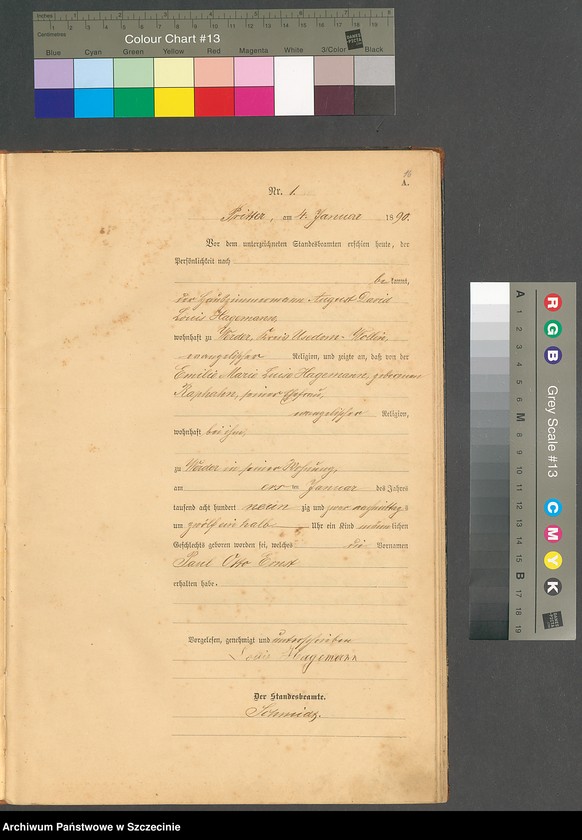 Inches
Centimetres
Colour Chart #13
Blue Cyan Green Yellow Red Magenta White 3/Color Black
A.
Nr. 1.
Pritter, am 4. Januar 1890.
Vor dem unterzeichneten Standesbeamten erschien heute, der
Persönlichkeit nach
be kannt,
der August David
Louis Hagemann,
wohnhaft zu Werder, Kreis Usedom-Wollin,
evangelischer Religion, und zeigte an, daß von der
Emilie Marie Luise Hagemann, geborenen
Kaphahn, seiner Ehefrau,
evangelischer Religion,
wohnhaft bei ihm,
zu Werder in seiner Wohnung,
am ersten Januar des Jahres
tausend acht hundert neunzig und Nachmittags
um zwölf ein halb Uhr ein Kind männlichen
Geschlechts geboren worden sei, welches die Vornamen
Paul Otto Ernst
erhalten habe.
Vorgelesen, genehmigt und unterschrieben
Louis Hagemann
Der Standesbeamte.
Schmidt.
R G B
Grey Scale #13
C M Y K
A 1 2 3 4 5 6 M 8 9 10 11 12 13 14 15 B 17 18 19
Archiwum Państwowe w Szczecinie